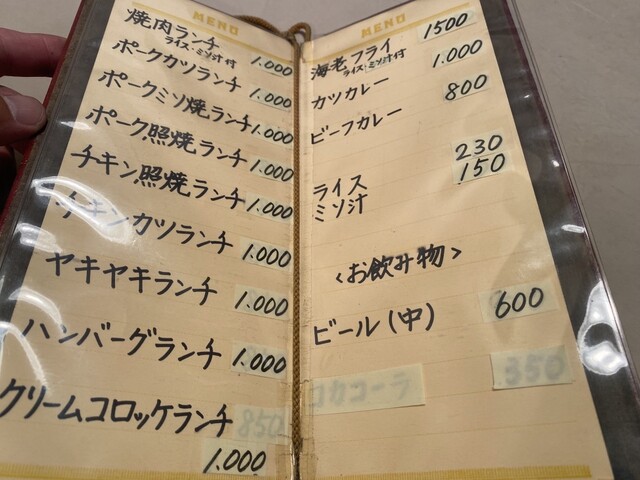 MENU
焼肉ランチ 1.000
ライス・ミソ汁付
ポークカツランチ 1.000
ポークミソ焼ランチ 1.000
ポーク照焼ランチ 1.000
チキン照焼ランチ 1.000
チキンカツランチ 1.000
ヤキヤキランチ 1.000
ハンバーグランチ 1.000
クリームコロッケランチ 850
1.000
MENU
海老フライ 1500
ライス・ミソ汁付
カツカレー 1.000
ビーフカレー 800
ライス 230
ミソ汁 150
<お飲み物>
ビール(中) 600
コカコーラ 350